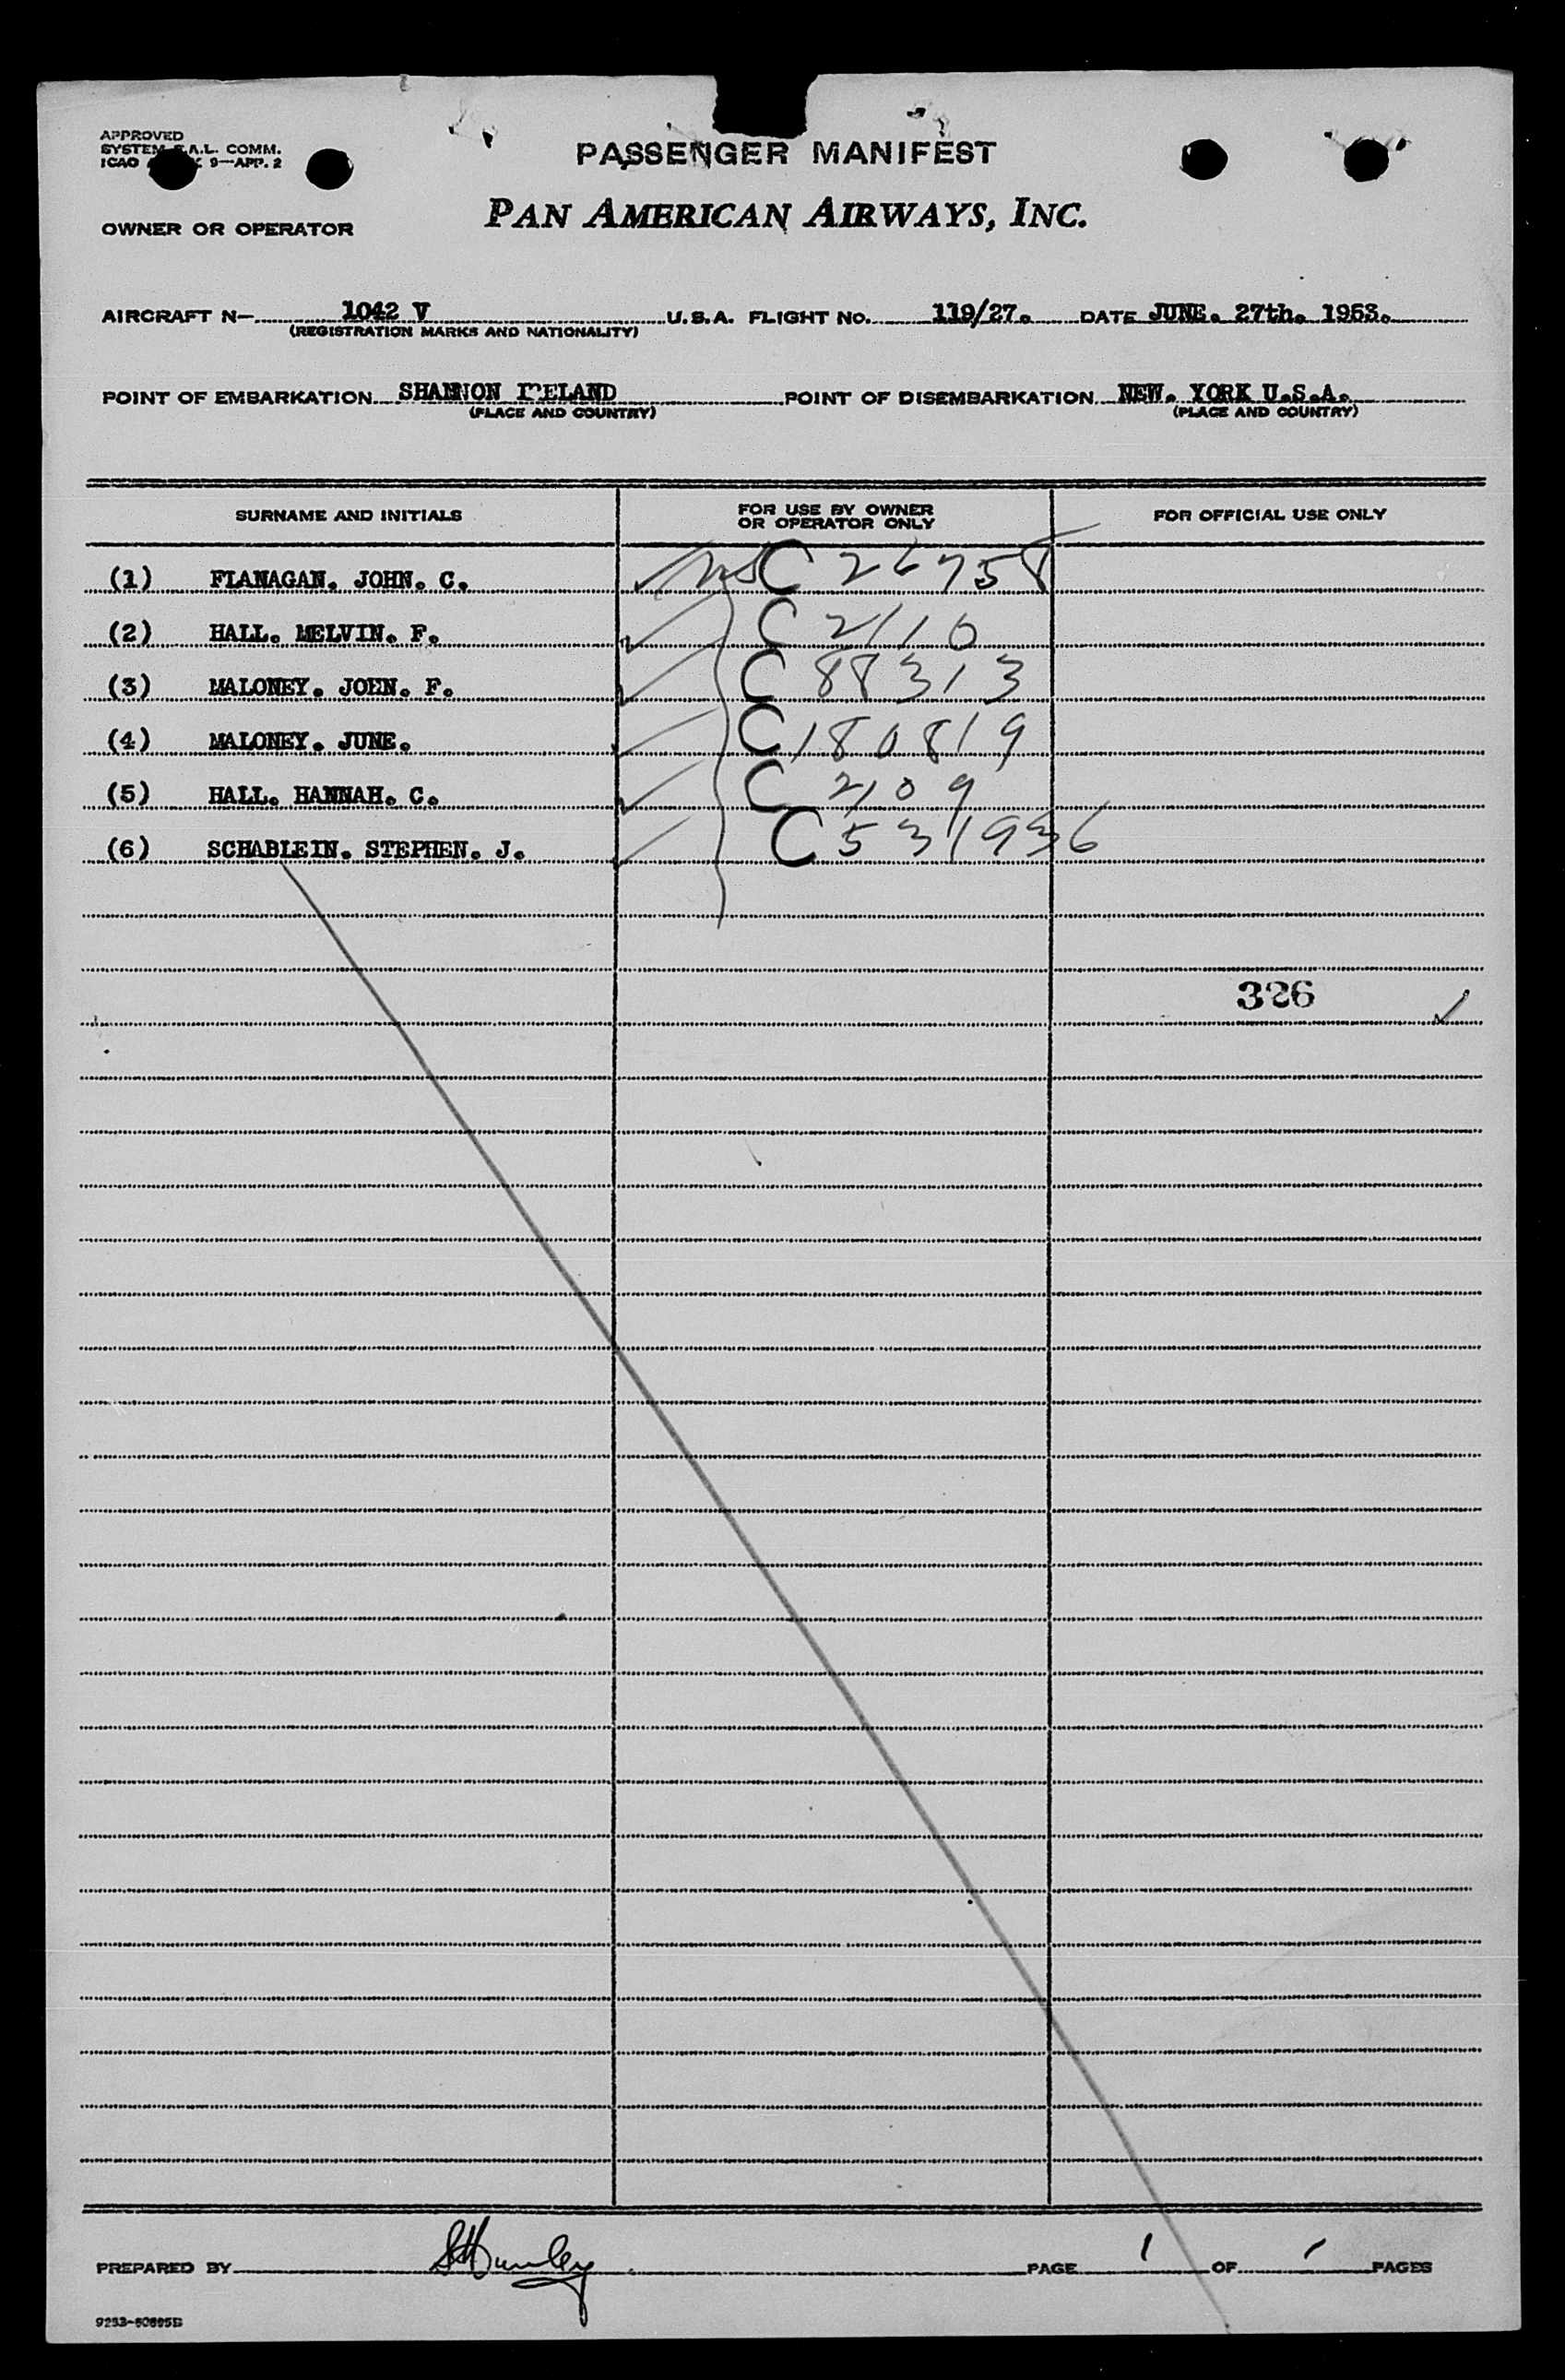 APPROVED
SYSTEM F.A.L. COMM.
ICAO 9—APP. 2
PASSENGER MANIFEST
OWNER OR OPERATOR
PAN AMERICAN AIRWAYS, INC.
AIRCRAFT N— 1042 V U.S.A. FLIGHT NO. 119/27. DATE JUNE. 27th. 1953.
(REGISTRATION MARKS AND NATIONALITY)
POINT OF EMBARKATION SHANNON IRELAND POINT OF DISEMBARKATION NEW. YORK U.S.A.
(PLACE AND COUNTRY) (PLACE AND COUNTRY)
SURNAME AND INITIALS FOR USE BY OWNER OR OPERATOR ONLY FOR OFFICIAL USE ONLY
(1) FLANAGAN. JOHN. C. C 26758
(2) HALL. MELVIN. F. C 2110
(3) MALONEY. JOHN. F. C 88313
(4) MALONEY. JUNE. C 180819
(5) HALL. HANNAH. C. C 2109
(6) SCHABLEIN. STEPHEN. J. C 531936
326
PREPARED BY PAGE 1 OF 1 PAGES